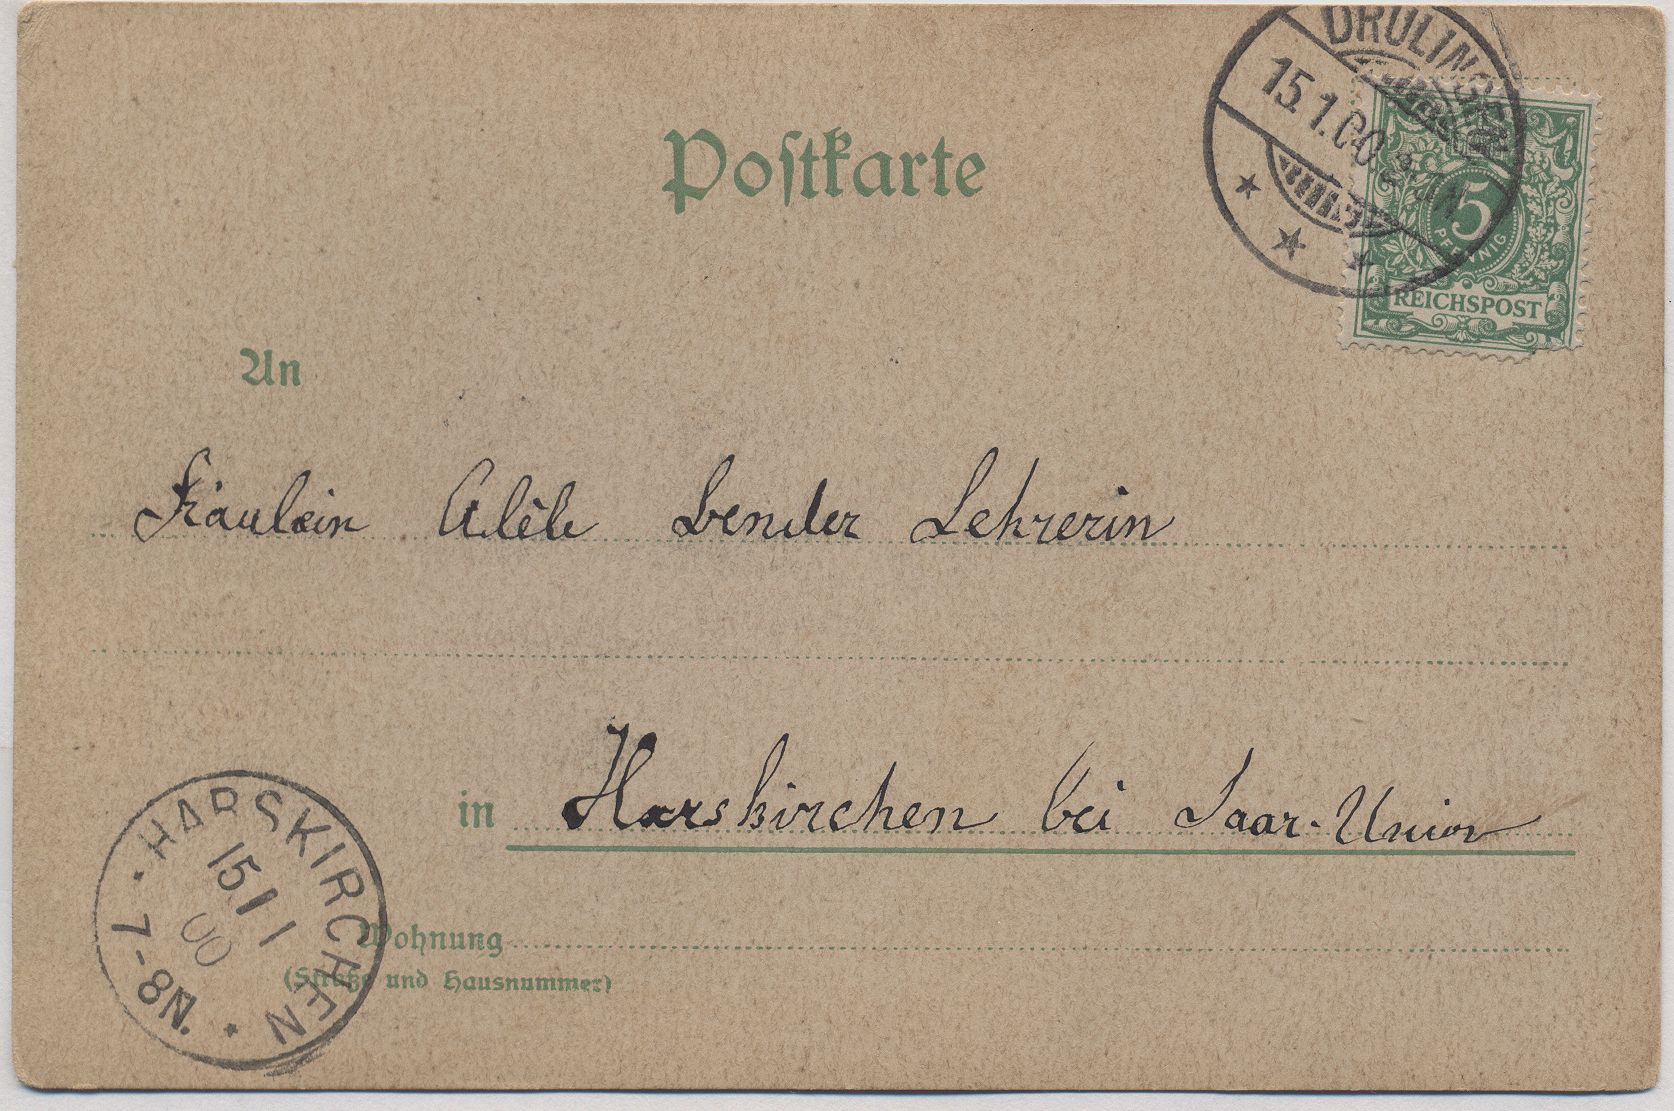 DRULINGEN
15.1.00.
5
PFENNIG
REICHSPOST
Postkarte
An
Fräulein Adèle Bender Lehrerin
in Harskirchen bei Saar-Union
Wohnung
(Straße und Hausnummer)
HARSKIRCHEN
15 1
00
7-8N.